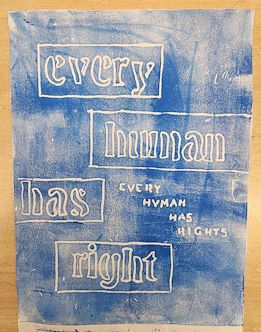 every
human
has
EVERY
HUMAN
HAS
RIGHTS
right